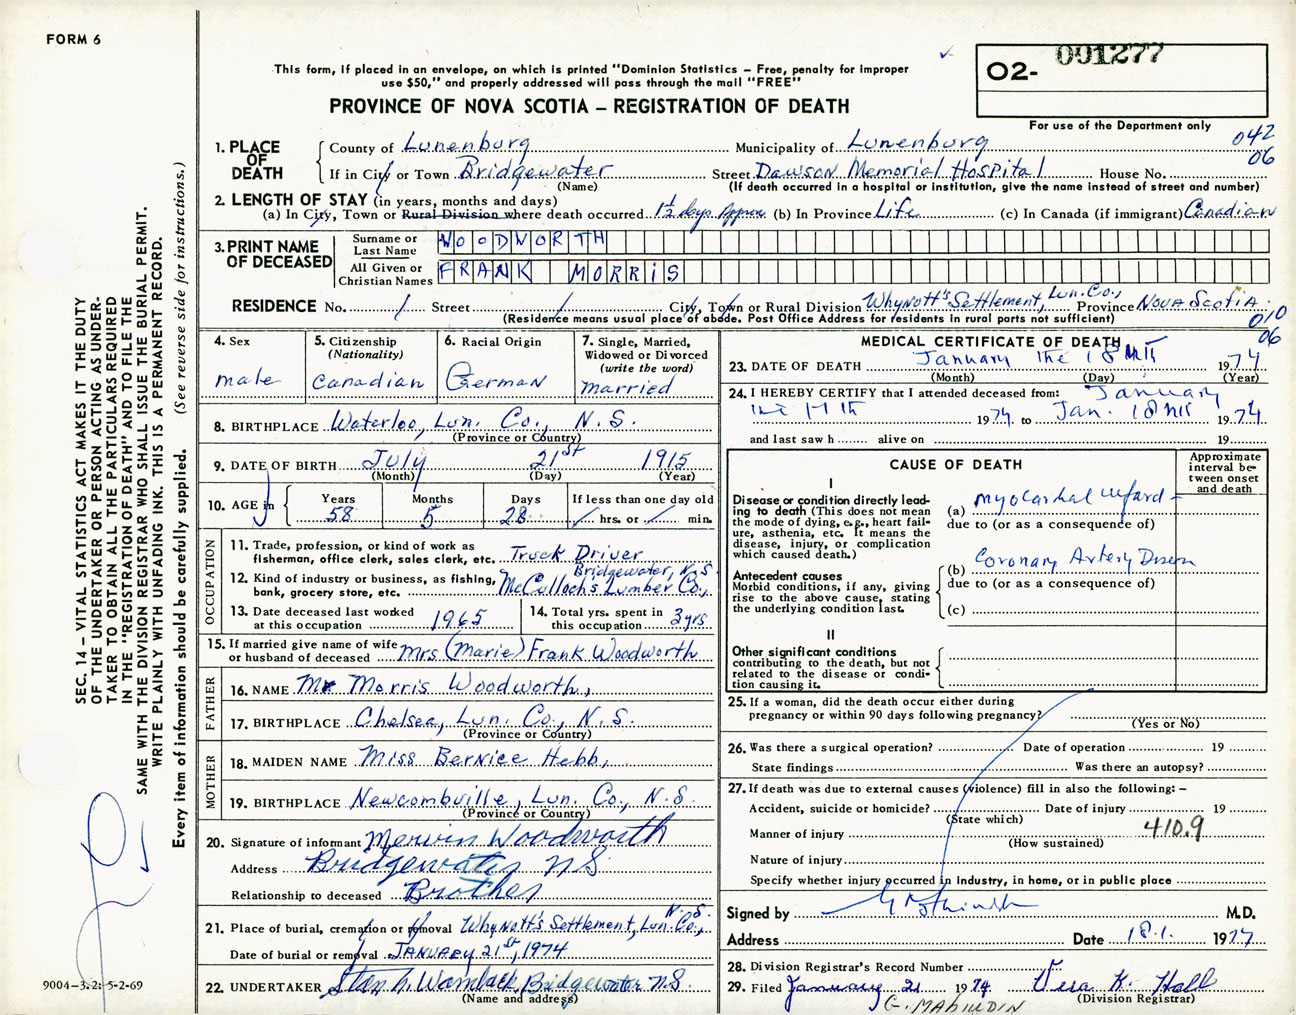 FORM 6
This form, if placed in an envelope, on which is printed "Dominion Statistics – Free, penalty for improper
use $50," and properly addressed will pass through the mail "FREE"
PROVINCE OF NOVA SCOTIA – REGISTRATION OF DEATH
02- 001277
For use of the Department only
042
06
1. PLACE OF DEATH
County of Lunenburg Municipality of Lunenburg
If in City or Town Bridgewater Street Dawson Memorial Hospital House No.
(Name) (If death occurred in a hospital or institution, give the name instead of street and number)
2. LENGTH OF STAY (in years, months and days)
(a) In City, Town or Rural Division where death occurred 1½ days Approx (b) In Province Life (c) In Canada (if immigrant) Canadian
3. PRINT NAME OF DECEASED
Surname or Last Name WOODWORTH
All Given or Christian Names FRANK MORRIS
RESIDENCE No. / Street / City, Town or Rural Division Whynott's Settlement, Lun. Co., Province NOVA SCOTIA
(Residence means usual place of abode. Post Office Address for residents in rural parts not sufficient)
010
06
4. Sex male
5. Citizenship (Nationality) Canadian
6. Racial Origin German
7. Single, Married, Widowed or Divorced (write the word) married
8. BIRTHPLACE Waterloo, Lun. Co., N.S.
(Province or Country)
9. DATE OF BIRTH July 21st 1915
(Month) (Day) (Year)
10. AGE in Years 58 Months 5 Days 28 If less than one day old / hrs. or / min.
OCCUPATION
11. Trade, profession, or kind of work as fisherman, office clerk, sales clerk, etc. Truck Driver
12. Kind of industry or business, as fishing, bank, grocery store, etc. McCullochs Lumber Co., Bridgewater, N.S.
13. Date deceased last worked at this occupation 1965
14. Total yrs. spent in this occupation 3 yrs
15. If married give name of wife or husband of deceased Mrs (Marie) Frank Woodworth
FATHER
16. NAME Mr Morris Woodworth,
17. BIRTHPLACE Chelsea, Lun. Co., N.S.
(Province or Country)
MOTHER
18. MAIDEN NAME Miss Bernice Hebb,
19. BIRTHPLACE Newcombville, Lun. Co., N.S.
(Province or Country)
20. Signature of informant Mervin Woodworth
Address Bridgewater NS
Relationship to deceased Brother
21. Place of burial, cremation or removal Whynott's Settlement, Lun. Co., N.S.
Date of burial or removal JANUARY 21st, 1974
22. UNDERTAKER Bridgewater N.S.
(Name and address)
MEDICAL CERTIFICATE OF DEATH
23. DATE OF DEATH January the 18 1974
(Month) (Day) (Year)
24. I HEREBY CERTIFY that I attended deceased from: January
the 17th 1974 to Jan. 18 1974
and last saw h alive on 19
CAUSE OF DEATH
Approximate interval between onset and death
I
Disease or condition directly leading to death (This does not mean the mode of dying, e.g., heart failure, asthenia, etc. It means the disease, injury, or complication which caused death.)
(a) Myocardial
due to (or as a consequence of)
Antecedent causes
Morbid conditions, if any, giving rise to the above cause, stating the underlying condition last.
(b) Coronary Artery
due to (or as a consequence of)
(c)
II
Other significant conditions
contributing to the death, but not related to the disease or condition causing it.
25. If a woman, did the death occur either during pregnancy or within 90 days following pregnancy?
(Yes or No)
26. Was there a surgical operation? Date of operation 19
State findings Was there an autopsy?
27. If death was due to external causes (violence) fill in also the following: –
Accident, suicide or homicide? Date of injury 19
(State which)
Manner of injury 410.9
(How sustained)
Nature of injury
Specify whether injury occurred in Industry, in home, or in public place
Signed by M.D.
Address Date 18.1. 1977
28. Division Registrar's Record Number 5
29. Filed January 21 1974 Vera K. Hall
(Division Registrar)
G. MAHIUDIN
SEC. 14 – VITAL STATISTICS ACT MAKES IT THE DUTY
OF THE UNDERTAKER OR PERSON ACTING AS UNDER-
TAKER TO OBTAIN ALL THE PARTICULARS REQUIRED
IN THE "REGISTRATION OF DEATH" AND TO FILE THE
SAME WITH THE DIVISION REGISTRAR WHO SHALL ISSUE THE BURIAL PERMIT.
WRITE PLAINLY WITH UNFADING INK. THIS IS A PERMANENT RECORD.
Every item of information should be carefully supplied. (See reverse side for instructions.)
9004-3.2: 5-2-69